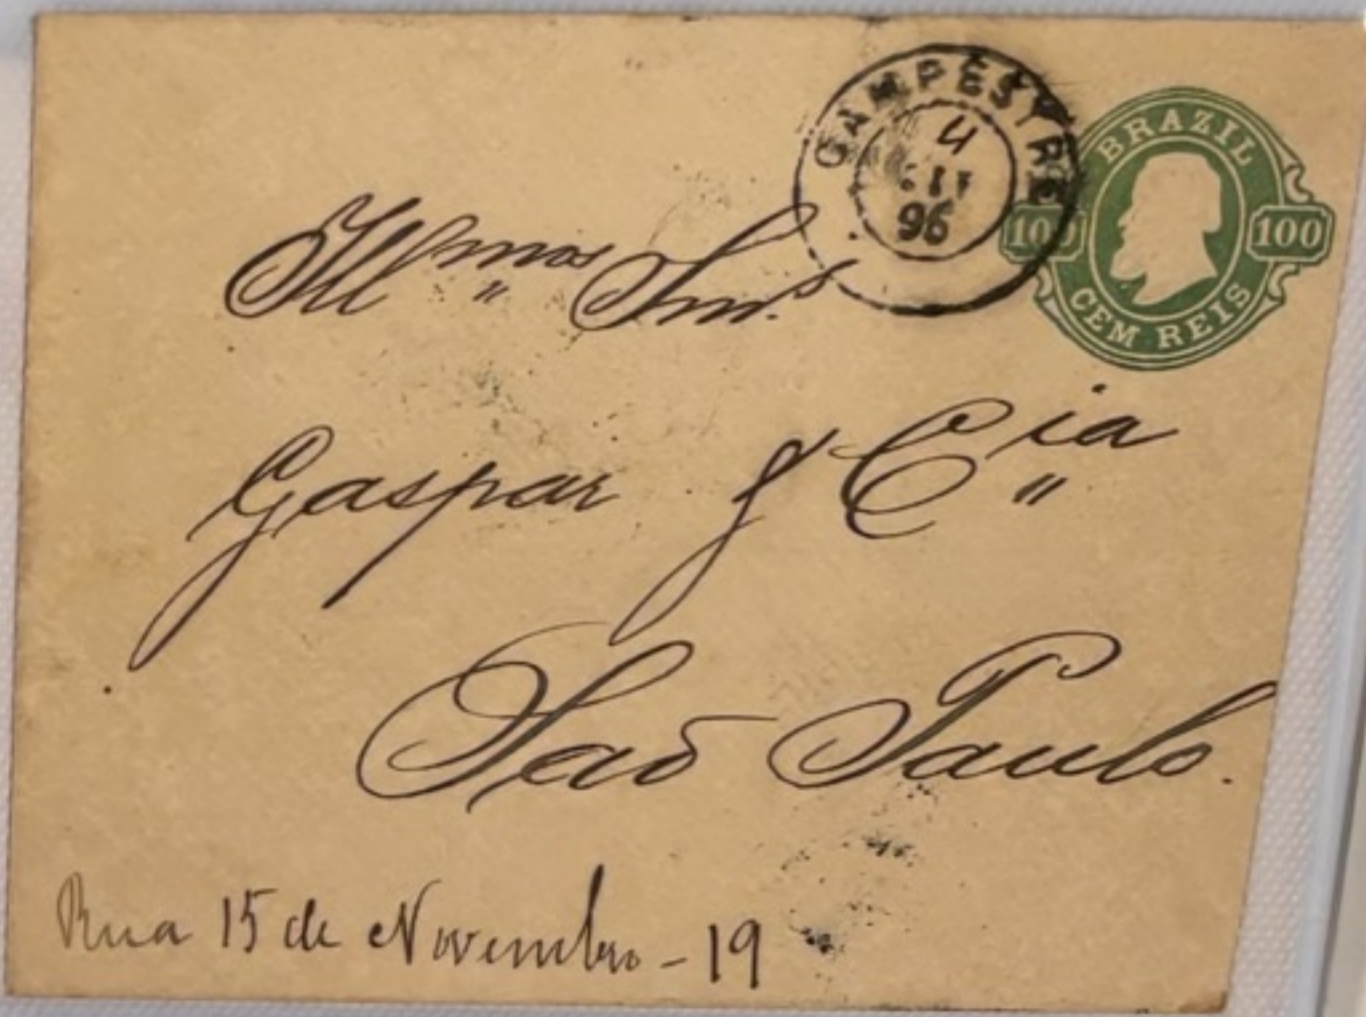 CAMPESTRE
4
96
BRAZIL
100 100
CEM REIS
Illmos Snrs.
Gaspar & Cia
São Paulo.
Rua 15 de Novembro - 19